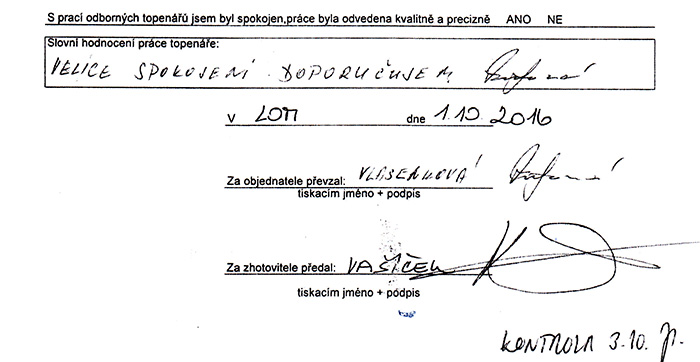 S prací odborných topenářů jsem byl spokojen,práce byla odvedena kvalitně a precizně ANO NE
Slovní hodnocení práce topenáře:
VELICE SPOKOJENÍ. DOPORUČUJEM
V LOM dne 1.10.2016
Za objednatele převzal: VLASENKOVÁ
tiskacím jméno + podpis
Za zhotovitele předal: VAŠÍČEK
tiskacím jméno + podpis
KONTROLA 3.10.